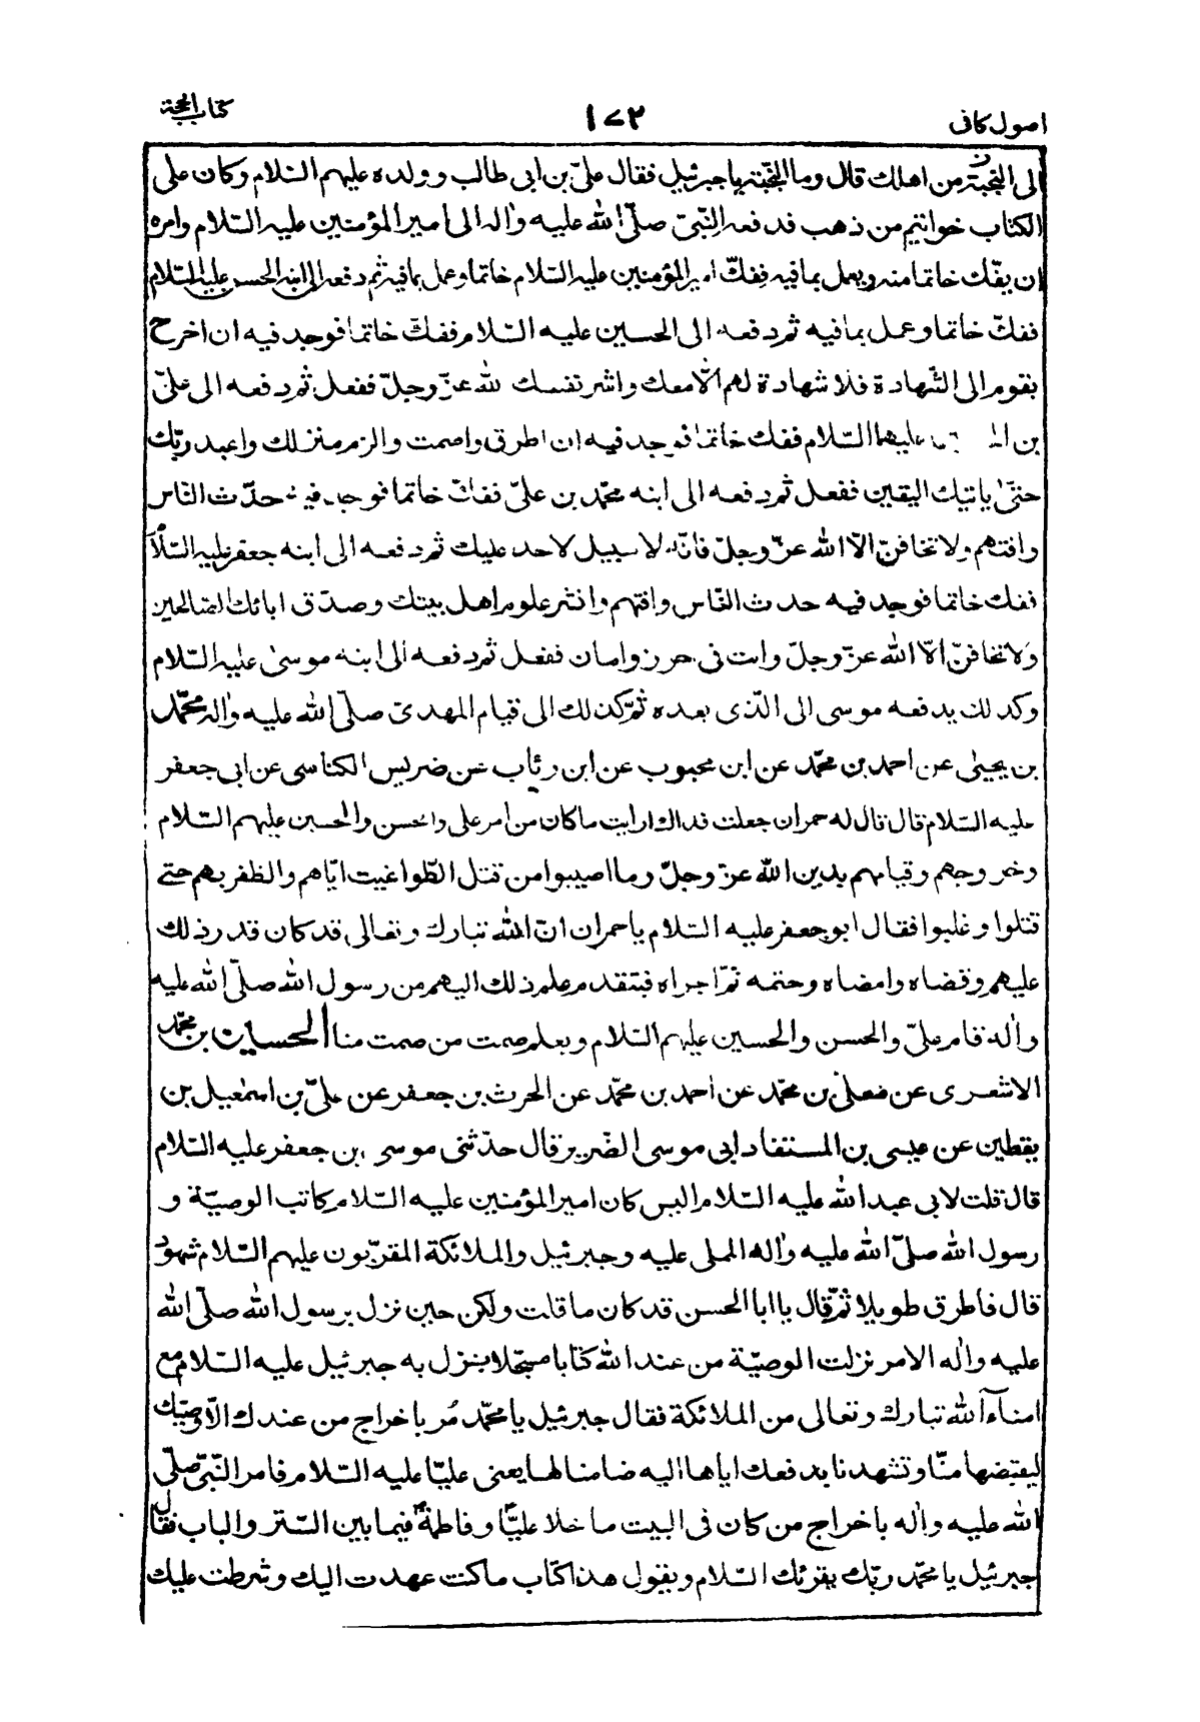 اصول كافى
١٧٢
كتاب الحجة
الى النجبة من اهلك قال وما النجبة يا جبرئيل فقال علىّ بن ابى طالب وولده عليهم السّلام وكان على
الكتاب خواتيم من ذهب فدفعه النّبىّ صلّى الله عليه واله الى امير المؤمنين عليه السّلام وامره
ان يفّك خاتما منه ويعمل بما فيه ففكّ امير المؤمنين عليه السّلام خاتما وعمل بما فيه ثم دفعه الى ابنه الحسن عليه السّلام
ففكّ خاتما وعمل بما فيه ثم دفعه الى الحسين عليه السّلام ففكّ خاتما فوجد فيه ان اخرج
بقوم الى الشّهادة فلا شهادة لهم الّا معك واشر نفسك لله عزّ وجلّ ففعل ثم دفعه الى علىّ
بن عليهما السّلام ففك خاتما فوجد فيه ان اطرق واصمت والزم منزلك واعبد ربّك
حتىٰ ياتيك اليقين ففعل ثم دفعه الى ابنه محمّد بن علىّ ففكّ خاتما فوجد فيه حدّث النّاس
وافتهم ولا تخافنّ الّا الله عزّ وجلّ فانّه لا سبيل لاحد عليك ثم دفعه الى ابنه جعفر عليه السّلا
ففك خاتما فوجد فيه حدث النّاس وافتهم وانشر علوم اهل بيتك وصدّق ابائك الصّالحين
ولا تخافنّ الّا الله عزّ وجلّ وانت فى حرز وامان ففعل ثم دفعه الى ابنه موسىٰ عليه السّلام
وكذلك يدفعه موسى الى الّذى بعده ثمّ كذلك الى قيام المهدىّ صلّى الله عليه واله محمّد
بن يحيىٰ عن احمد بن محمّد عن ابن محبوب عن ابن رئاب عن ضريس الكناسى عن ابى جعفر
عليه السّلام قال قال له حمران جعلت فداك ارايت ما كان من امر على والحسن والحسين عليهم السّلام
وخروجهم وقيامهم بدين الله عزّ وجلّ وما اصيبوا من قتل الطّواغيت ايّاهم والظفر بهم حتى
قتلوا وغلبوا فقال ابو جعفر عليه السّلام يا حمران انّ الله تبارك وتعالى قد كان قدر ذلك
عليهم وقضاه وامضاه وحتمه ثمّ اجراه فبتقدم علم ذلك اليهم من رسول الله صلّى الله عليه
واله قام علىّ والحسن والحسين عليهم السّلام وبعلم صمت من صمت منا الحسين بن محمّد
الاشعرى عن معلىٰ بن محمّد عن احمد بن محمّد عن الحرث بن جعفر عن علىّ بن اسمٰعيل بن
يقطين عن عيسى بن المستفاد ابى موسى الضّرير قال حدّثنى موسى بن جعفر عليه السّلام
قال قلت لابى عبد الله عليه السّلام اليس كان امير المؤمنين عليه السّلام كاتب الوصيّة و
رسول الله صلّى الله عليه واله المملى عليه وجبرئيل والملائكة المقرّبون عليهم السّلام شهود
قال فاطرق طويلا ثمّ قال يا ابا الحسن قد كان ما قلت ولكن حين نزل برسول الله صلّى الله
عليه واله الامر نزلت الوصيّة من عند الله كتابا مسجّلا نزل به جبرئيل عليه السّلام مع
امناء الله تبارك وتعالى من الملائكة فقال جبرئيل يا محمّد مُر باخراج من عندك الّا وصيّك
ليقبضها منّا وتشهدنا بدفعك اياها اليه ضامنا لها يعنى عليّا عليه السّلام فامر النّبىّ صلّى
الله عليه واله باخراج من كان فى البيت ما خلا عليّا وفاطمة فيما بين السّتر والباب فقال
جبرئيل يا محمّد ربّك يقرئك السّلام ويقول هذا كتاب ما كنت عهدت اليك وشرطت عليك